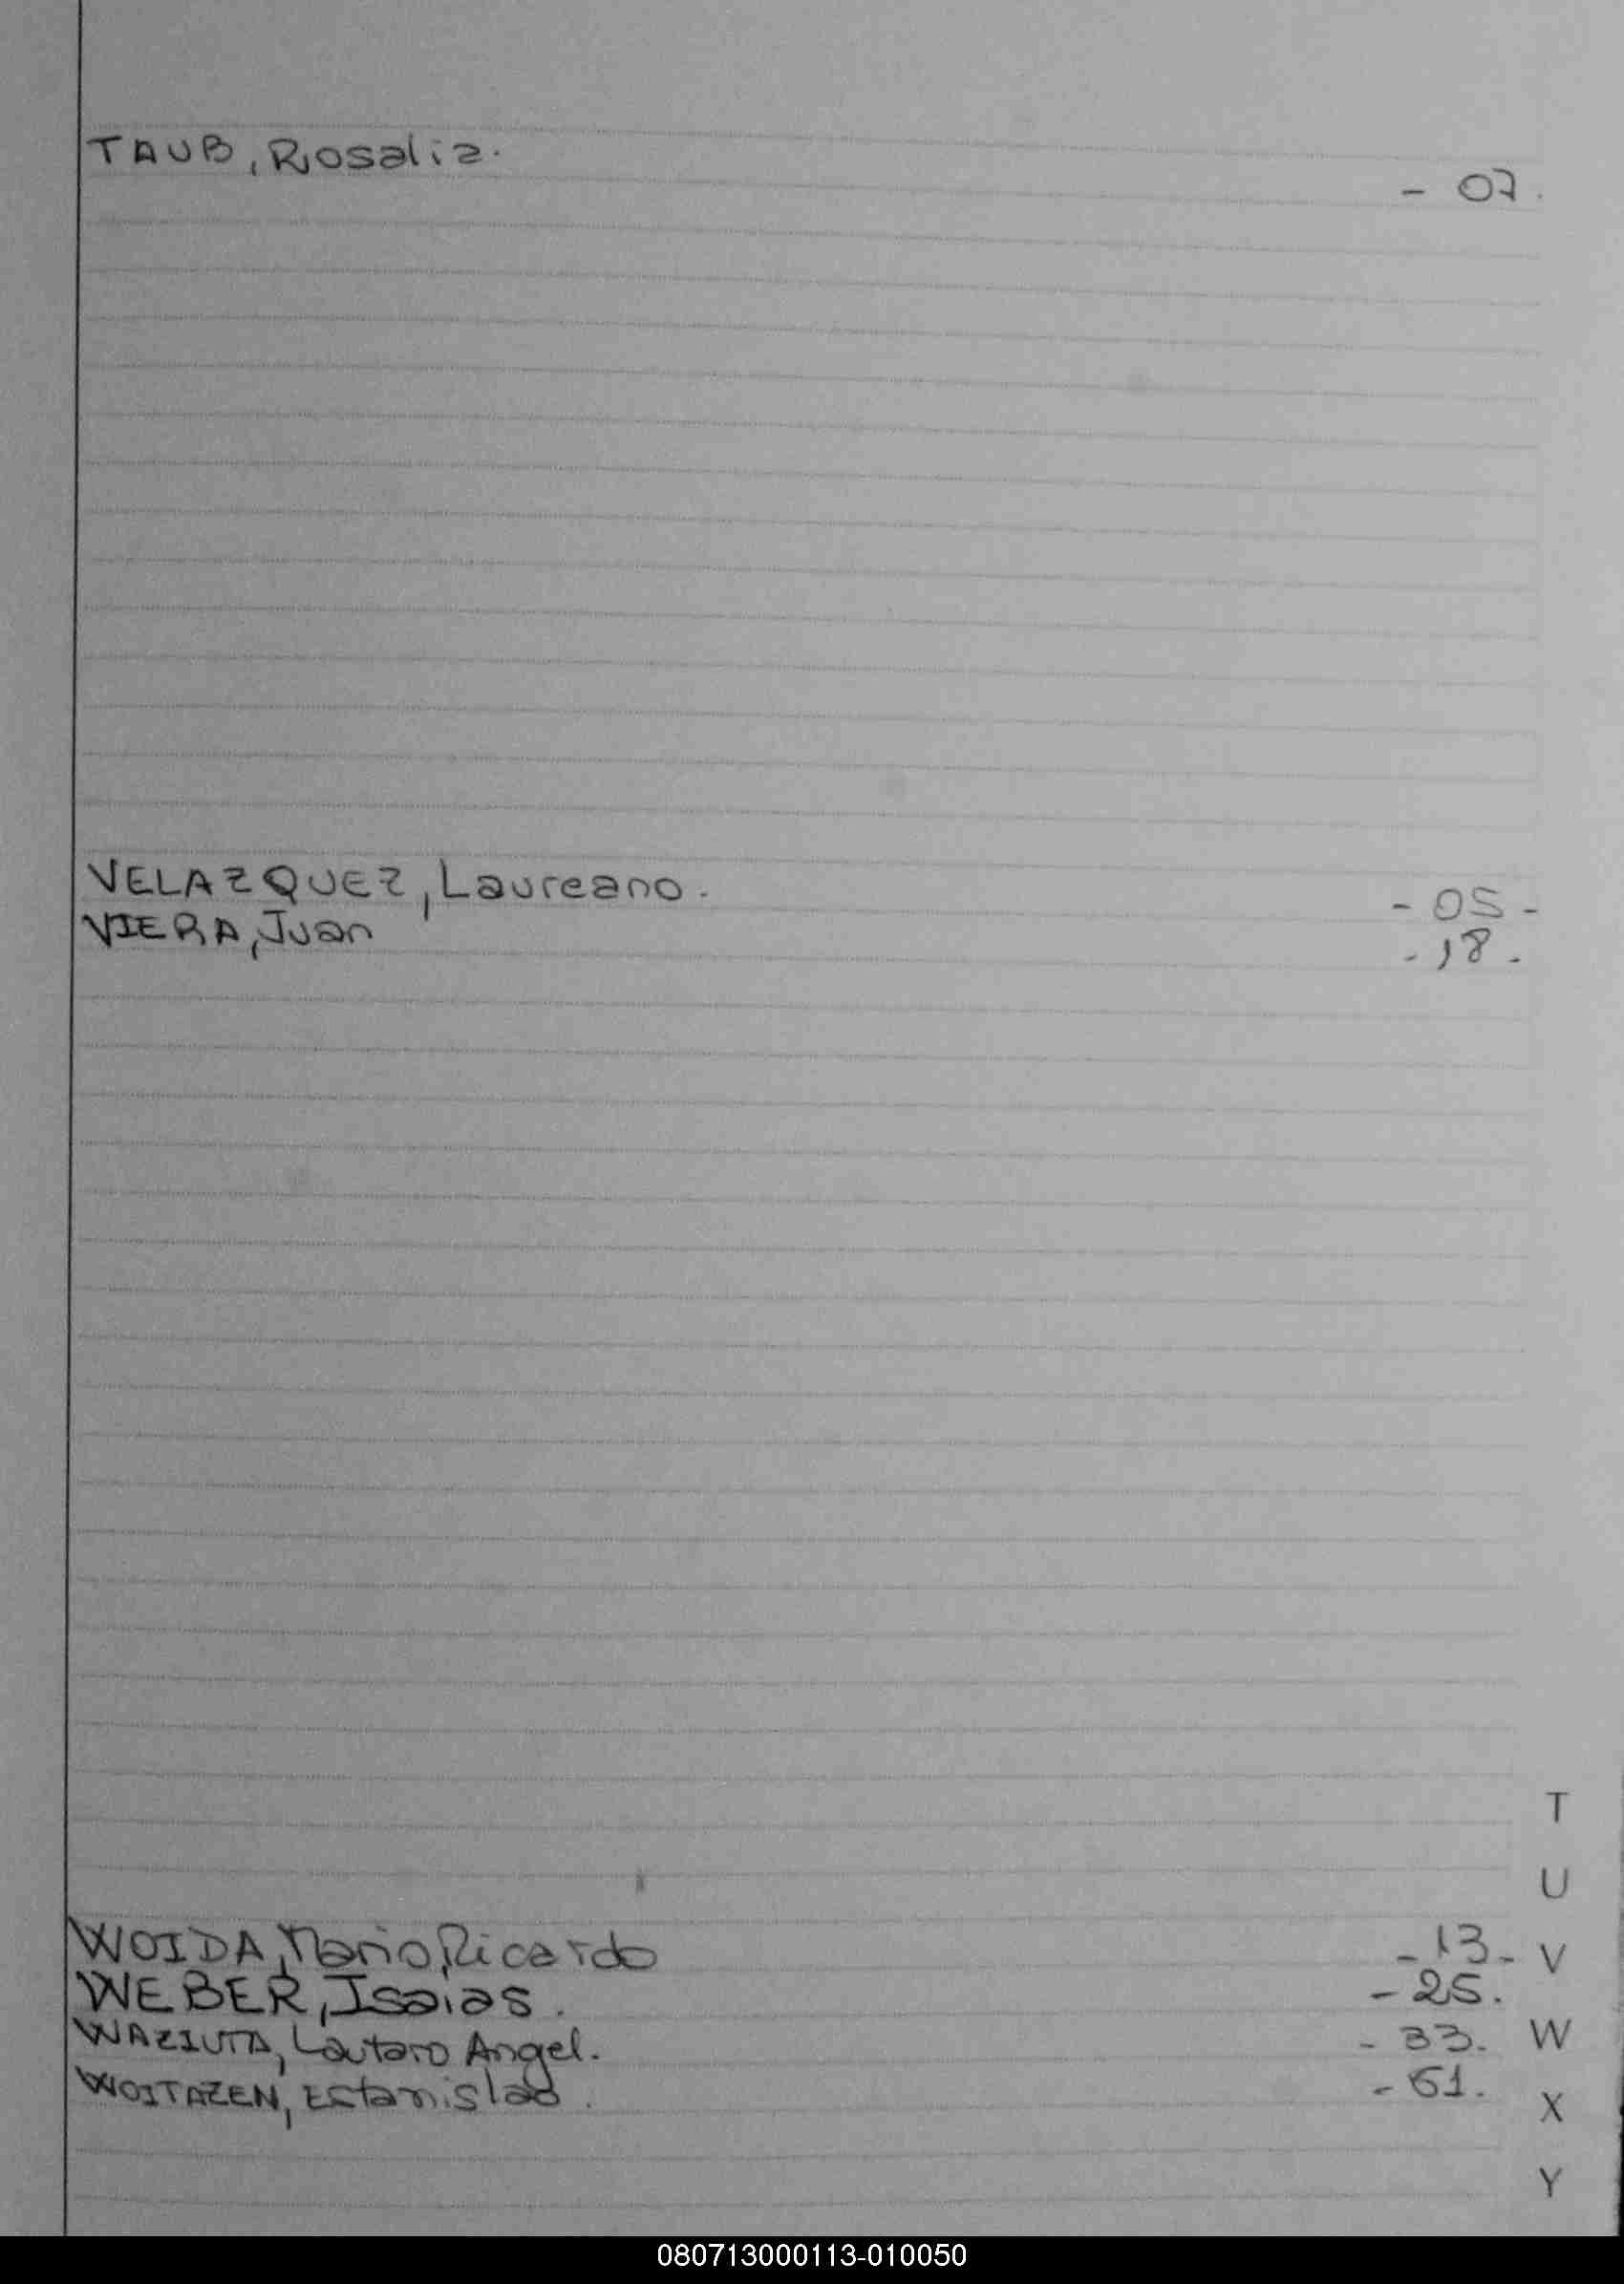 TAUB, Rosalia.
- 07.
VELAZQUEZ, Laureano.
- 05 -
VIERA, Juan
- 18 -
T
U
WOIDA, Mario, Ricardo
- 13 -
V
WEBER, Isaias.
- 25.
WAZIUTA, Lautaro Angel.
- 33.
W
WOITAZEN, Estanislao.
- 61.
X
Y
080713000113-010050